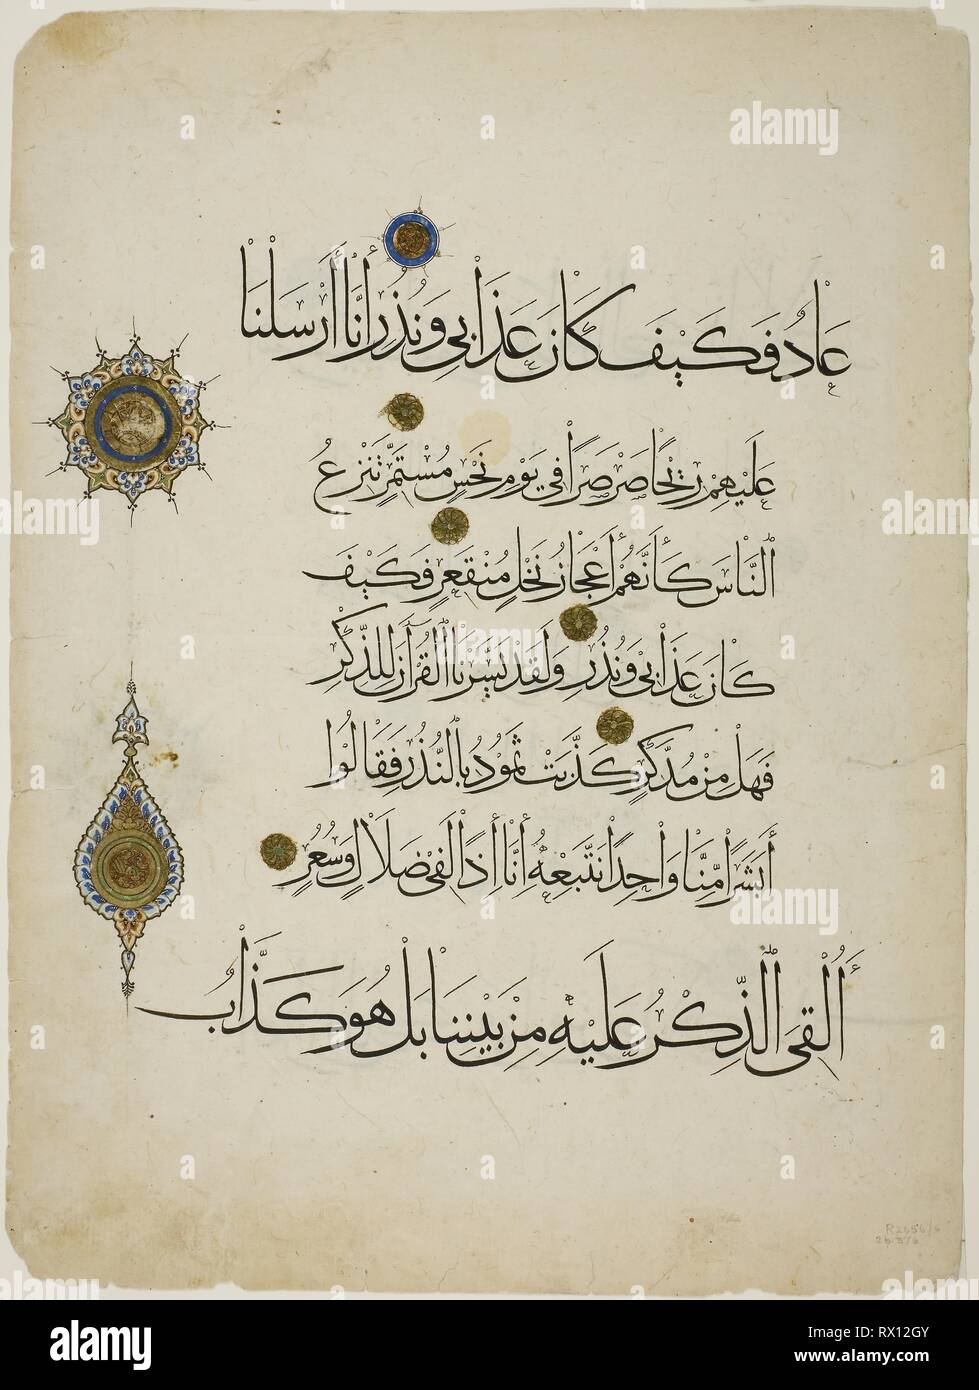 عَادٌ فَكَيْفَ كَانَ عَذَابِي وَنُذُرِ إِنَّا أَرْسَلْنَا
عَلَيْهِمْ رِيْحًا صَرْصَرًا فِي يَوْمِ نَحْسٍ مُسْتَمِرٍّ تَنْزِعُ
النَّاسَ كَأَنَّهُمْ أَعْجَازُ نَخْلٍ مُنْقَعِرٍ فَكَيْفَ
كَانَ عَذَابِي وَنُذُرِ وَلَقَدْ يَسَّرْنَا الْقُرْآنَ لِلذِّكْرِ
فَهَلْ مِنْ مُدَّكِرٍ كَذَّبَتْ ثَمُودُ بِالنُّذُرِ فَقَالُوا
أَبَشَرًا مِنَّا وَاحِدًا نَتَّبِعُهُ إِنَّا إِذًا لَفِي ضَلَالٍ وَسُعُرٍ
أَأُلْقِيَ الذِّكْرُ عَلَيْهِ مِنْ بَيْنِنَا بَلْ هُوَ كَذَّابٌ
alamy
a
Image ID: RX12GY
www.alamy.com